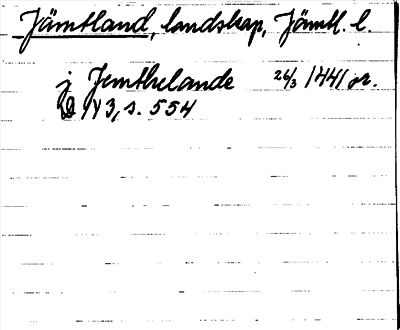 Jämtland, landskap, Jämtl. l.
j Jemthelande 26/3 1441 or.
D N 3, s. 554